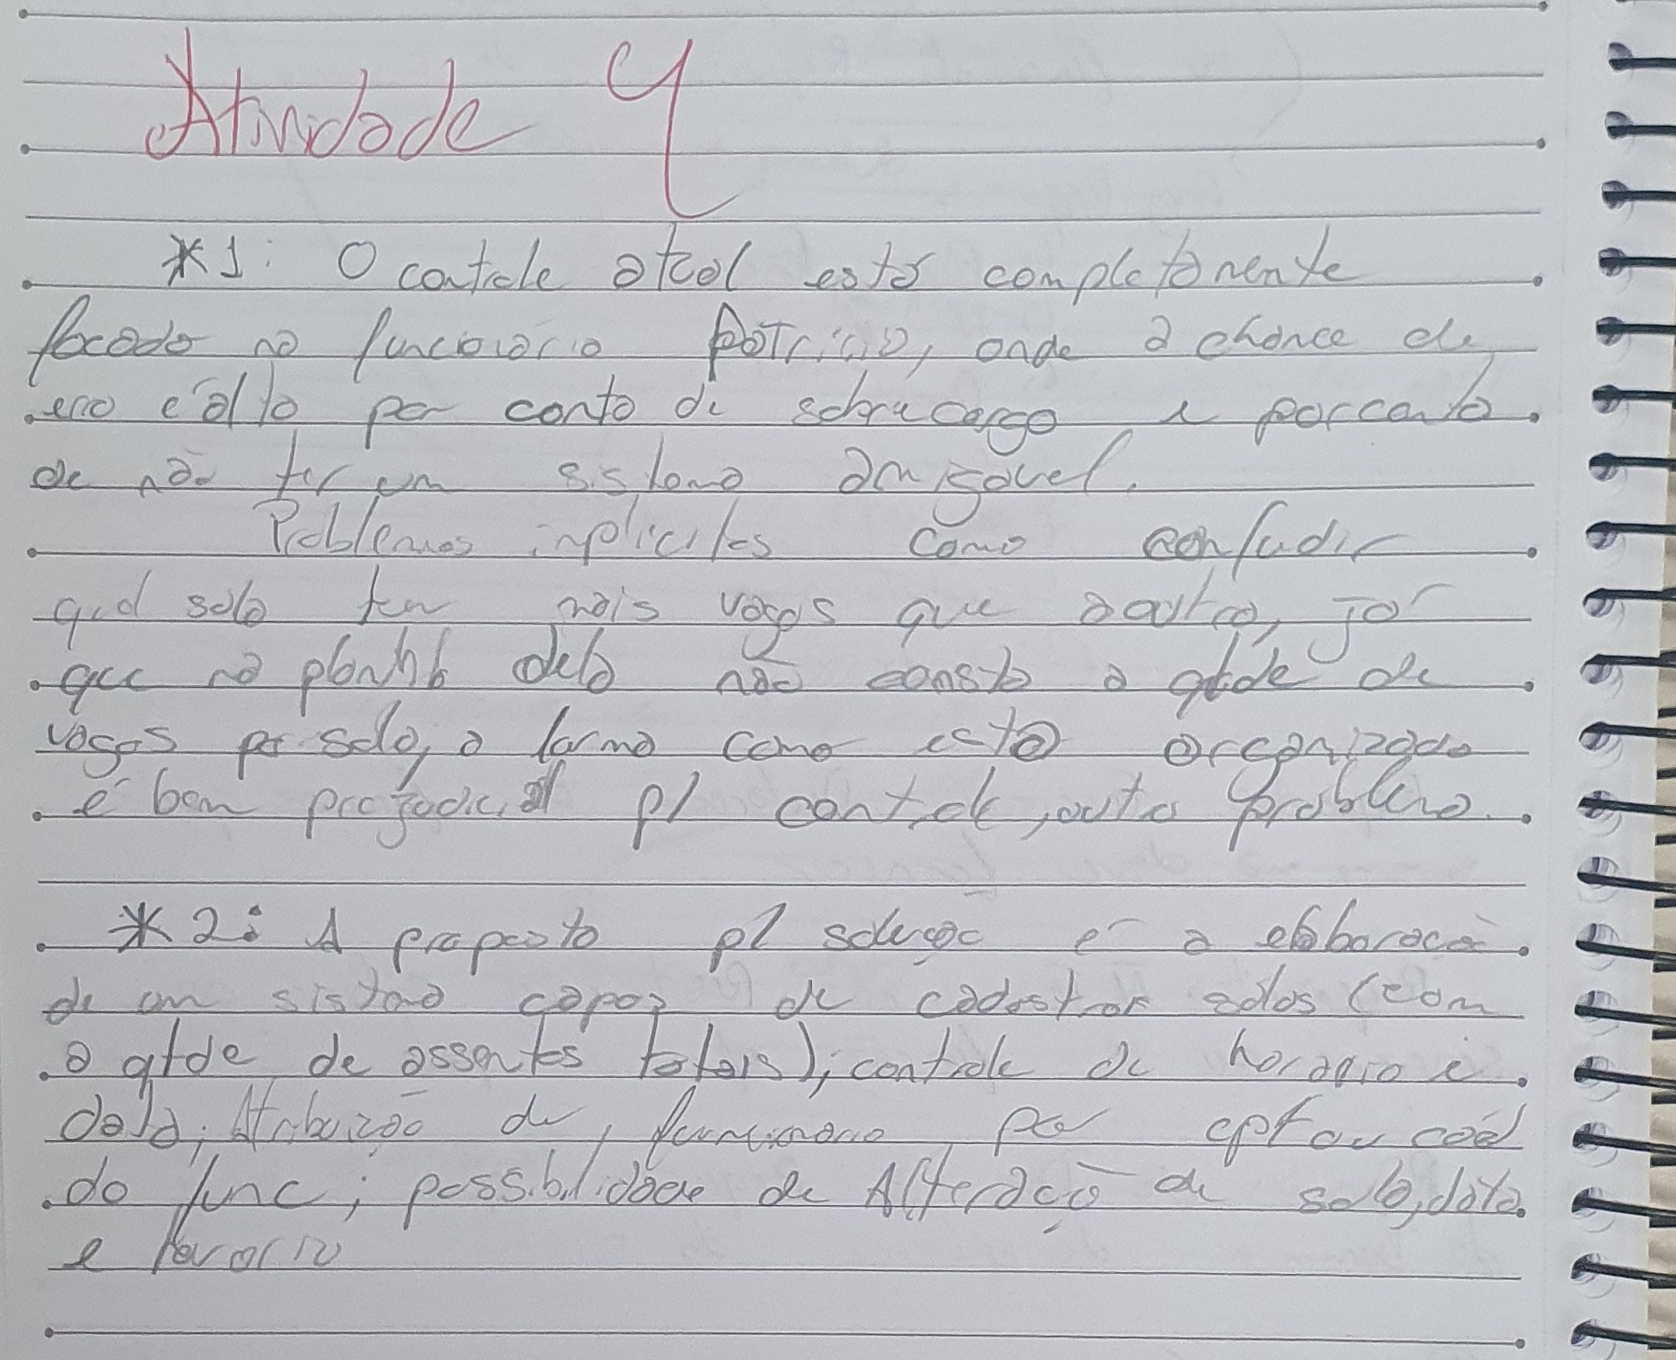 Atividade 4
*1: O controle atual está completamente
focado na funcionária Patrícia, onde a chance de
erro é alta por conta de sobrecarga e por conta
de não ter um sistema amigavel.
Problemas implicitos como confudir
qual sala tem mais vagas que a outra, já
que na planilha dela não consta a qtde de
vagas por sala, a forma como está organizado
é bem prejudicial p/ controle, outro problema.
*2: A proposta p/ solução é a elaboração
de um sistema capaz de cadastrar salas (com
a qtde de assentos totais); controle de horario e
data; Atribuição de funcionario por cpf ou cod
do func; possibilidade de Alteração de sala, data
e horario